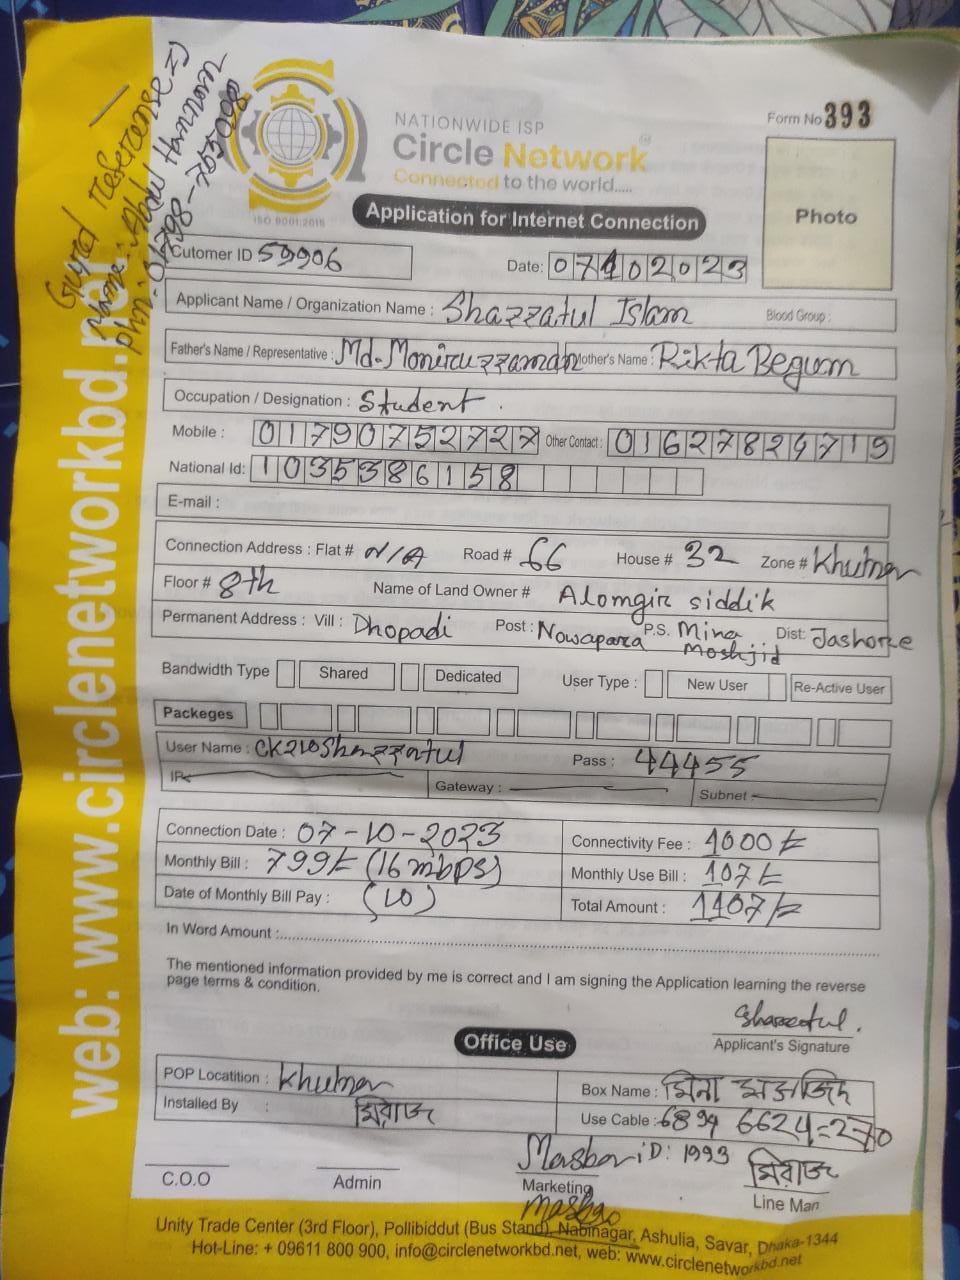 Guyed Referense
Name: Abdul Hannnan
NATIONWIDE ISP
Form No 393
Circle Network
Connected to the world.....
ISO 9001:2015
Application for Internet Connection
Photo
Cutomer ID 59906
Date: 07102023
Applicant Name / Organization Name : Shazzatul Islam Blood Group :
Father's Name / Representative : Md. Moniruzzaman Mother's Name : Rikta Begum
Occupation / Designation : Student.
Mobile : 01790752727 Other Contact : 01627824719
National Id: 1035386158
E-mail :
Connection Address : Flat # N/A Road # 66 House # 32 Zone # Khulna
Floor # 8th Name of Land Owner # Alomgir siddik
Permanent Address : Vill : Dhopadi Post : Nowapara P.S. Mina Moshjid Dist: Jashore
Bandwidth Type Shared Dedicated User Type : New User Re-Active User
Packeges
User Name : Pass : 44455
IP Gateway : Subnet
Connection Date : 07-10-2023 Connectivity Fee : 1000/=
Monthly Bill : 799/= (16 mbps) Monthly Use Bill : 107/=
Date of Monthly Bill Pay : (10) Total Amount : 1107/=
In Word Amount :
The mentioned information provided by me is correct and I am signing the Application learning the reverse
page terms & condition.
Shazzatul.
Applicant's Signature
Office Use
POP Locatition : Khulna Box Name : মিনা মসজিদ
Installed By : মিরাজ Use Cable : 6894 6624=270
iD: 1993 মিরাজ
C.O.O Admin Marketing Line Man
Unity Trade Center (3rd Floor), Pollibiddut (Bus Stand), Nabinagar, Ashulia, Savar, Dhaka-1344
Hot-Line: + 09611 800 900, info@circlenetworkbd.net, web: www.circlenetworkbd.net
web: www.circlenetworkbd.net